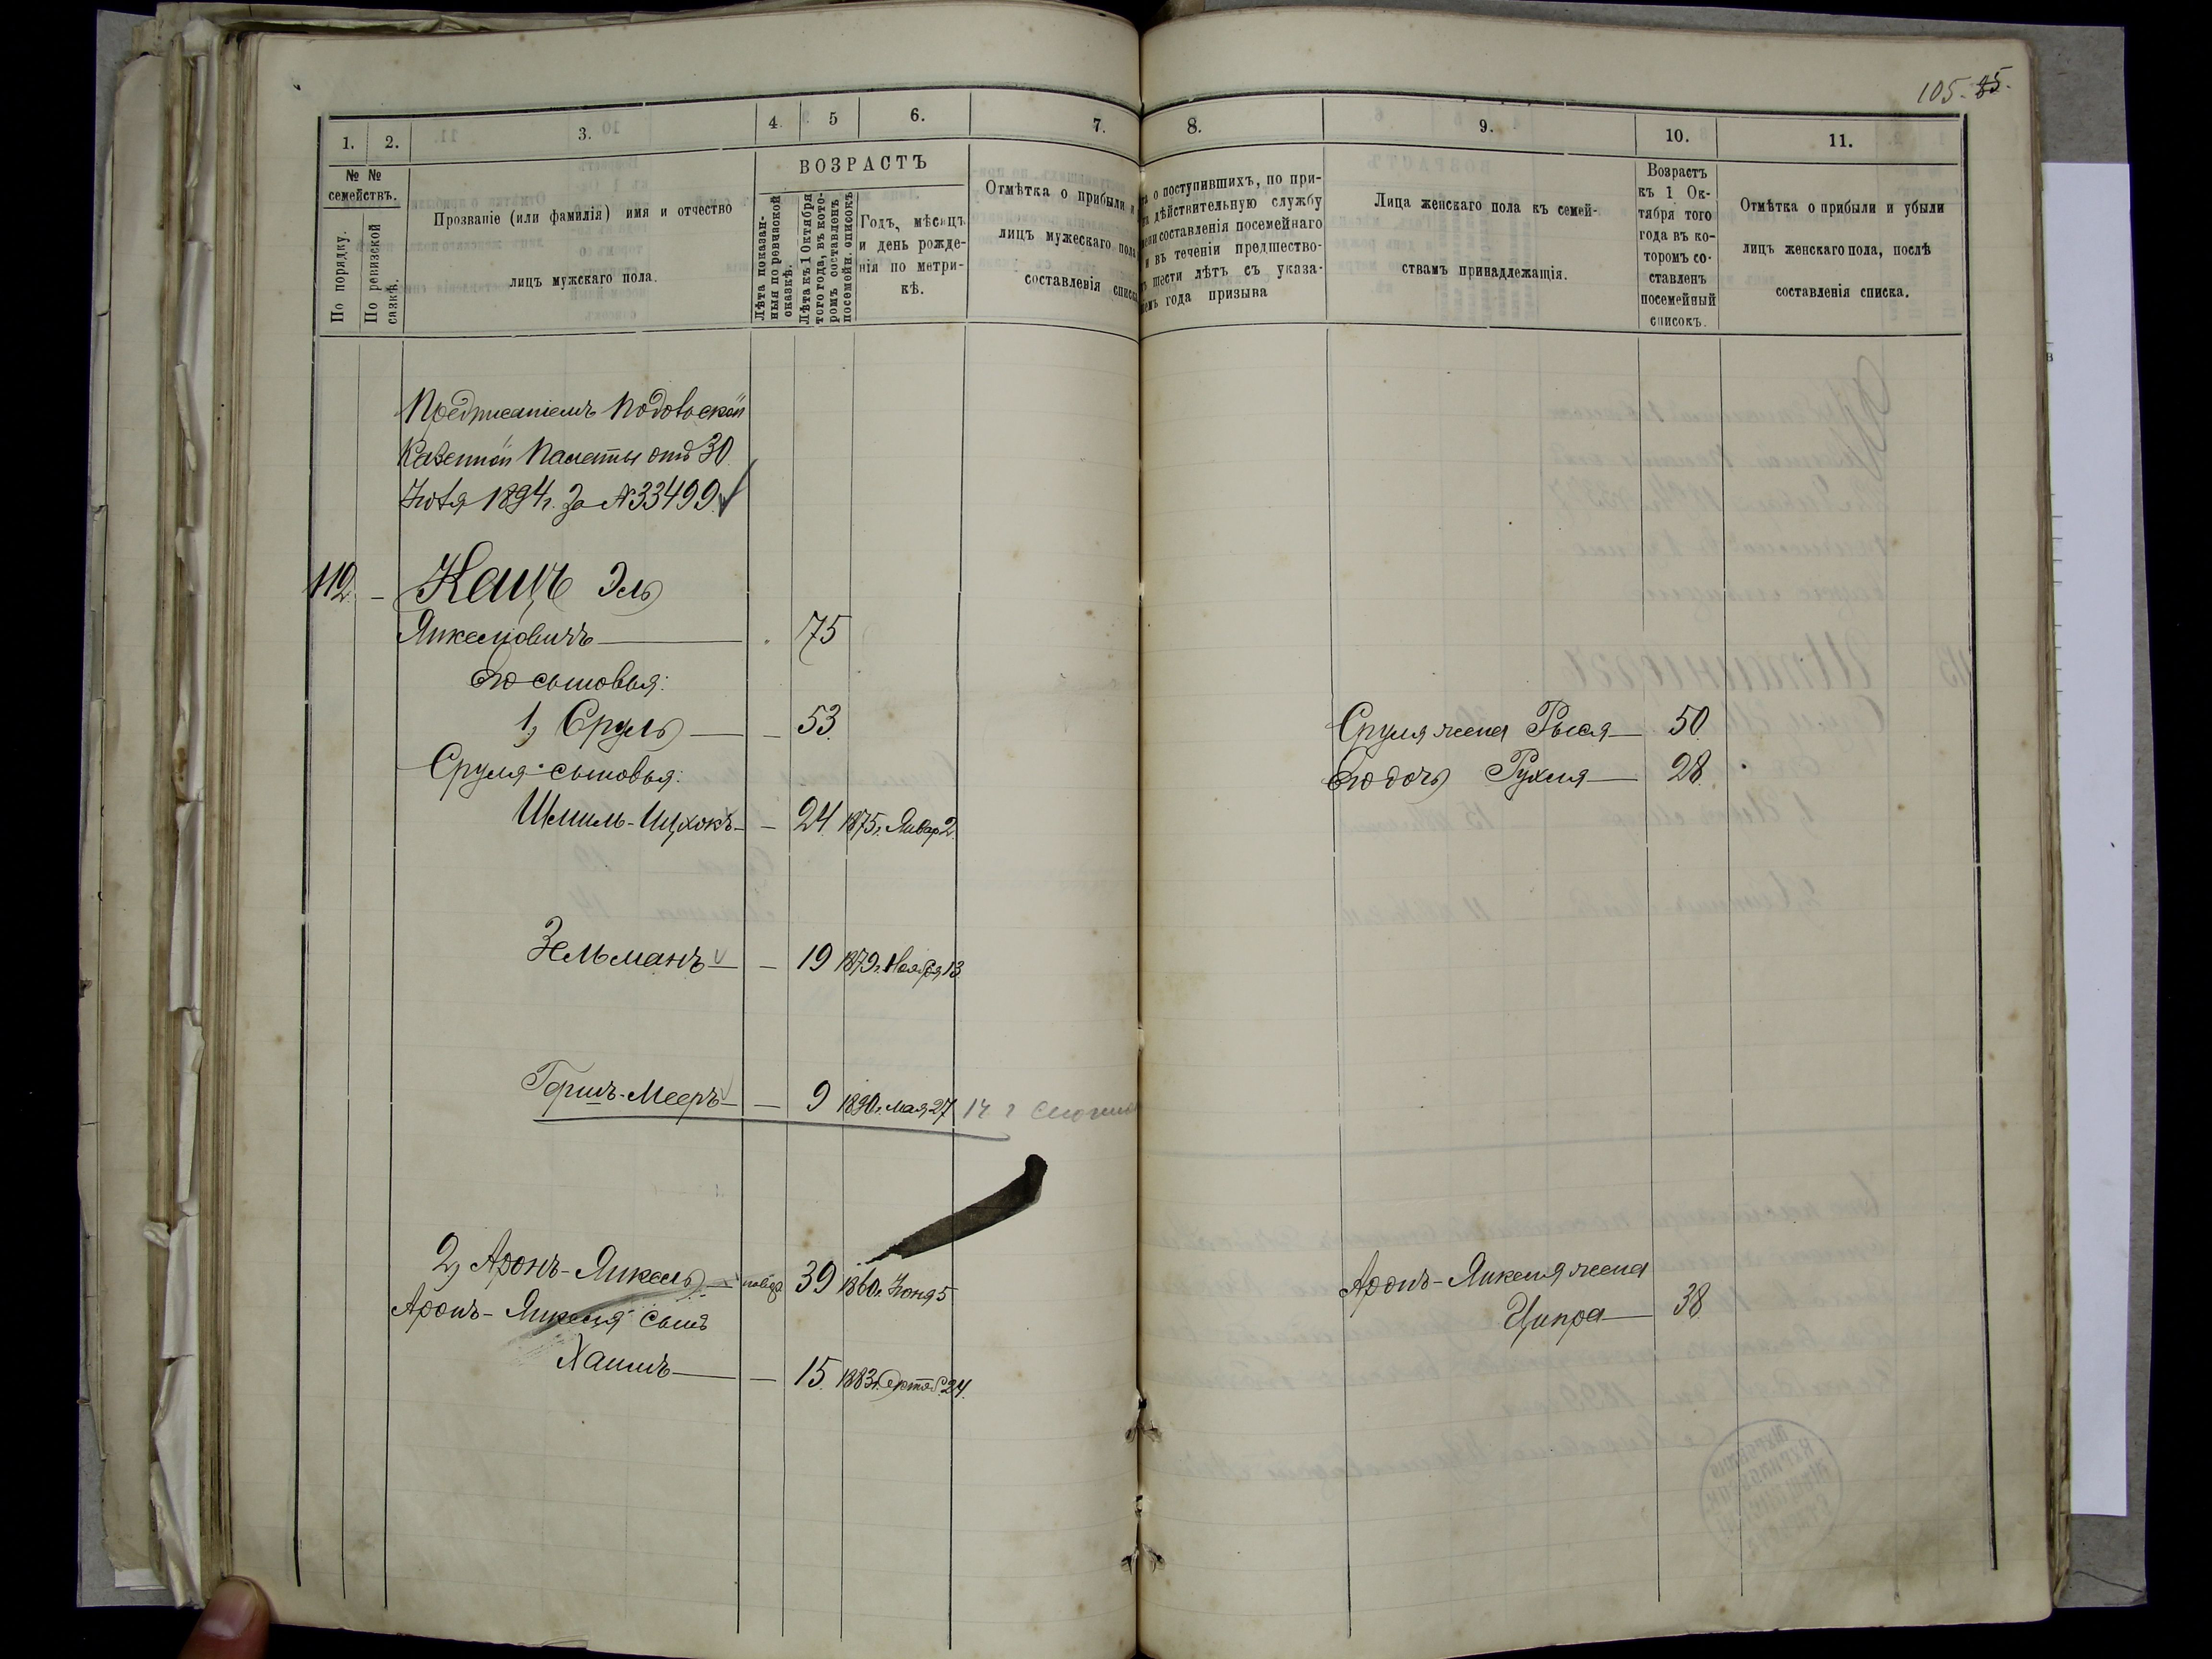 105. 85.
1. 2. 3. 4. 5 6. 7.
№ №
семействъ.
По порядку.
По ревизской
сказкѣ.
Прозваніе (или фамилія) имя и отчество
лицъ мужскаго пола.
ВОЗРАСТЪ
Лѣта показан-
ныя по ревизской
сказкѣ.
Лѣта къ 1 Октября
того года, въ кото-
ромъ составленъ
посемейн. списокъ
Годъ, мѣсяцъ
и день рожде-
нія по метри-
кѣ.
Отмѣтка о прибыли и
лицъ мужескаго пола
составленія списка
Предписаніемъ Подольской
Казенной Палаты отъ 30
Іюля 1894 г. за №33499.
112. - Кацъ Эль
Янкелювичъ - 75
Его сыновья:
1, Сруль - - 53.
Сруля сыновья:
Шмиль-Ицхокъ - - 24. 1875 г. Январ 2.
Зельманъ - - 19 1879 г. Ноября 13.
Гершъ-Мееръ - - 9 1890 г. Мая 27
2, Аронъ-Янкель - 39 1860 г. Іюня 5
Аронъ-Янкеля сынъ
Хаимъ - - 15. 1883 г. 24.
8. 9. 10. 11.
о поступившихъ, по при-
дѣйствительную службу
составленія посемейнаго
и въ теченіи предшество-
шести лѣтъ съ указа-
года призыва
Лица женскаго пола къ семей-
ствамъ принадлежащія.
Возрастъ
къ 1 Ок-
тября того
года въ ко-
торомъ со-
ставленъ
посемейный
списокъ.
Отмѣтка о прибыли и убыли
лицъ женскаго пола, послѣ
составленія списка.
Сруля жена Рыся - 50.
Его дочь Рухля - 28.
Аронъ-Янкеля жена
Ципра - 38.